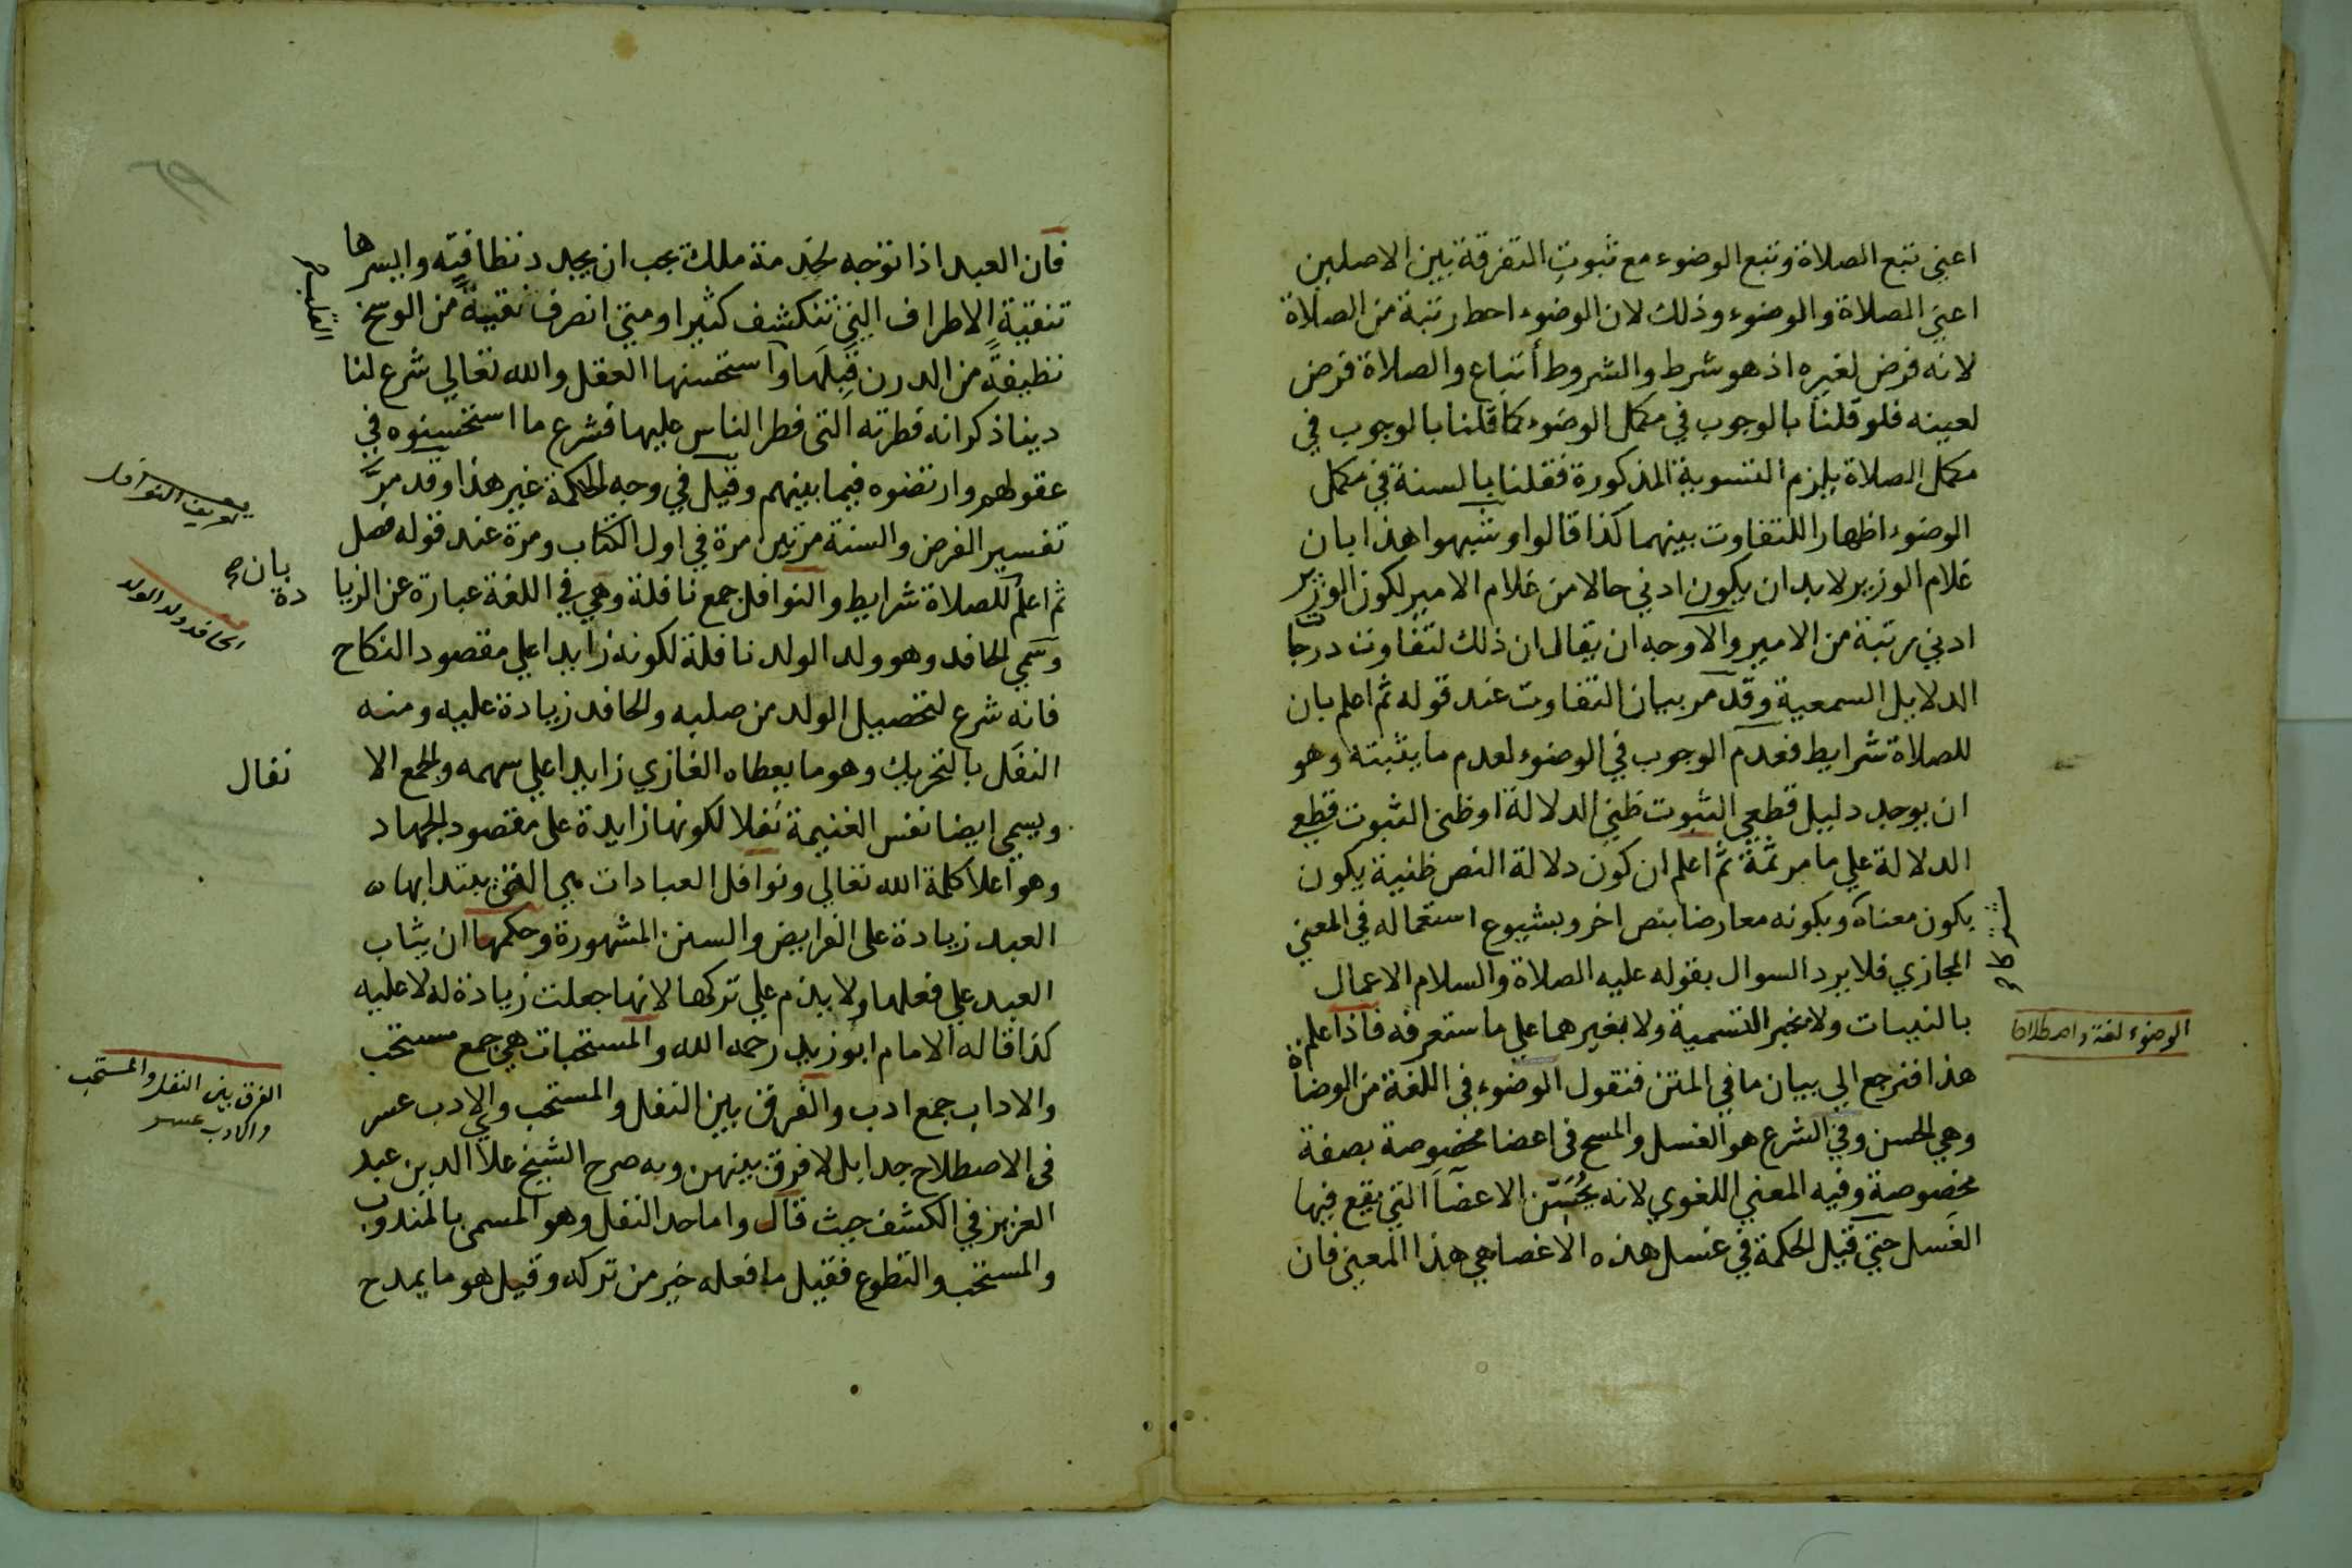 اعني تبع الصلاة وتبع الوضوء مع ثبوت التفرقة بين الاصلين
اعني الصلاة والوضوء وذلك لان الوضوء احط رتبة من الصلاة
لانه فرض لغيره اذ هو شرط والشروط أتباع والصلاة فرض
لعينه فلو قلنا بالوجوب في مكمل الوضوء كما قلنا بالوجوب في
مكمل الصلاة يلزم التسوية المذكورة فقلنا بالسنة في مكمل
الوضوء اظهارا للتفاوت بينهما كذا قالوا وشبهوا هذا بان
غلام الوزير لا بد ان يكون ادني حالا من غلام الامير لكون الوزير
ادني رتبة من الامير والاوجه ان يقال ان ذلك لتفاوت درجات
الدلايل السمعية وقد مر بيان التفاوت عند قوله ثم اعلم بان
للصلاة شرايط فعدم الوجوب في الوضوء لعدم ما يثبته وهو
ان يوجد دليل قطعي الثبوت ظني الدلالة او ظني الثبوت قطعي
الدلالة علي ما مر ثمة ثم اعلم ان كون دلالة النص ظنية يكون
يكون معناه وبكونه معارضا بنص اخر وبشيوع استعماله في المعني
المجازي فلا يرد السوال بقوله عليه الصلاة والسلام الاعمال
بالنيات ولا بخبر التسمية ولا بغيرهما علي ما ستعرفه فاذا علم
هذا فنرجع الي بيان ما في المتن فنقول الوضوء في اللغة من الوضاة
وهي الحسن وفي الشرع هو الغسل والمسح في اعضا مخصوصة بصفة
مخصوصة وفيه المعني اللغوي لانه يُحسّن الاعضآ التي يقع فيها
الغسل حتي قيل الحكمة في غسل هذه الاعضا هي هذا المعني فان
الوضوء لغة واصطلاحا
فان العبد اذا توجه لخدمة ملك يجب ان يجدد نظافته وايسرها
تنقية الاطراف التي تنكشف كثيرا ومتي انصرف نقية من الوسخ
نظيفة من الدرن قبلها واستحسنها العقل والله تعالي شرع لنا
دينا ذكر انه فطرته التي فطر الناس عليها فشرع ما استحسنوه في
عقولهم وارتضوه فيما بينهم وقيل في وجه الحكمة غير هذا وقد مرّ
تفسير الفرض والسنة مرتين مرة في اول الكتاب ومرة عند قوله فصل
ثم اعلم للصلاة شرايط والنوافل جمع نافلة وهي في اللغة عبارة عن الزيا
دة
بان صح
وسمي الحافد وهو ولد الولد نافلة لكونه زايدا علي مقصود النكاح
فانه شرع لتحصيل الولد من صلبه والحافد زيادة عليه ومنه
النفل بالتحريك وهو ما يعطاه الغازي زايدا علي سهمه والجمع الا
نفال
ويسمي ايضا نفس الغنيمة نفلا لكونها زايدة على مقصود الجهاد
وهو اعلا كلمة الله تعالي ونوافل العبادات هي التي يبتدا بها
العبد زيادة على الفرايض والسنن المشهورة وحكمها ان يثاب
العبد علي فعلها ولا يذم علي تركها لانها جعلت زيادة له لا عليه
كذا قاله الامام ابو زيد رحمه الله والمستحبات هي جمع مستحب
والاداب جمع ادب والفرق بين النفل والمستحب والادب عسر
في الاصطلاح جدا بل لا فرق بينهن وبه صرح الشيخ علا الدين عبد
العزيز في الكشف حيث قال واما حد النفل وهو المسمى بالمندوب
والمستحب والتطوع فقيل ما فعله خير من تركه وقيل هو ما يمدح
تعريف النوافل
الحافد ولد الولد
الفرق بين النفل والمستحب
والادب عسر